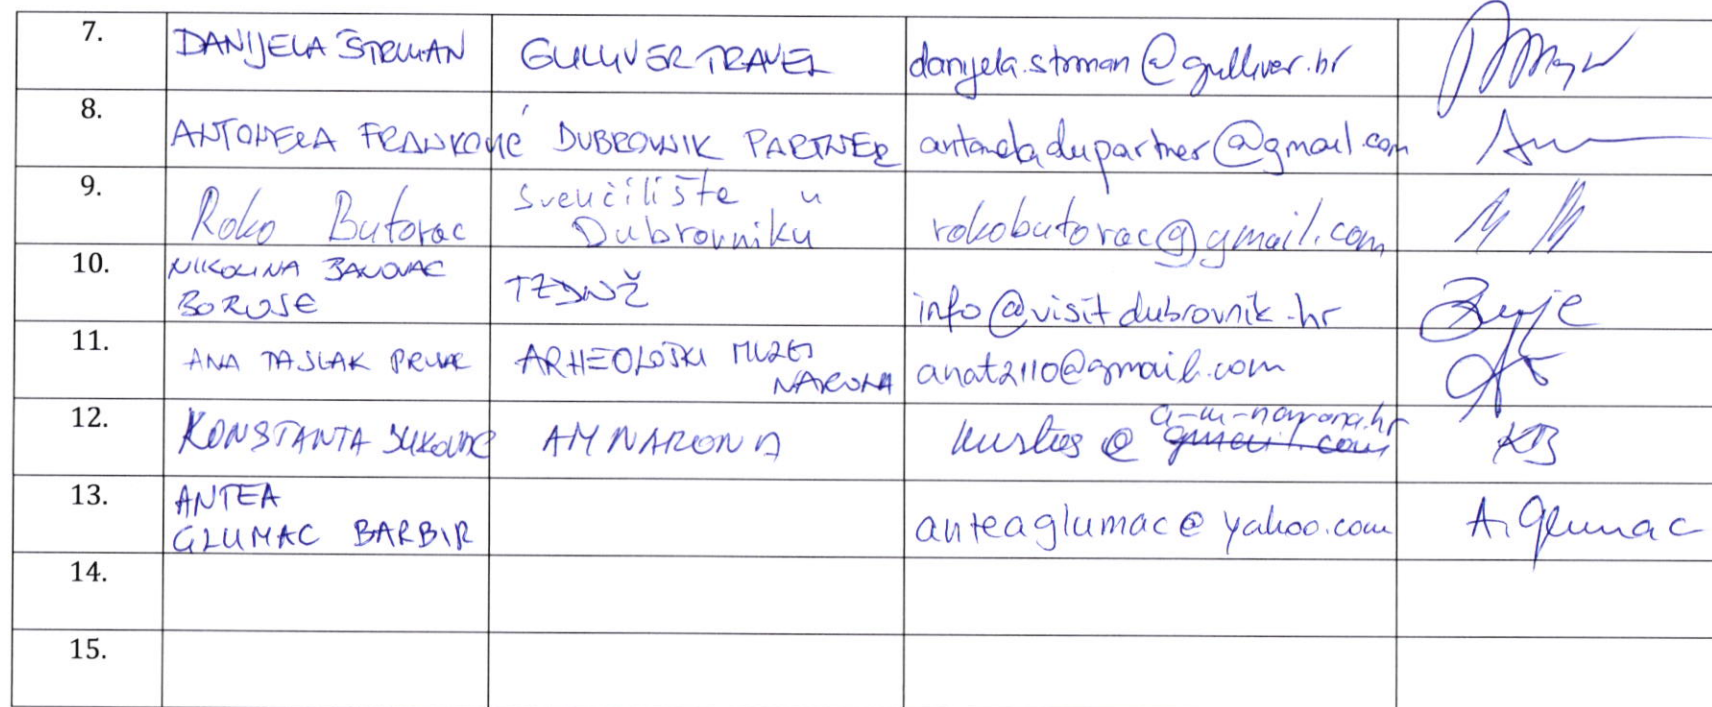 7. DANIJELA ŠTRMAN GULLIVER TRAVEL danijela.strman@gulliver.hr
8. ANTONELA FRANKOVIĆ DUBROVNIK PARTNER antoneladupartner@gmail.com
9. Roko Butorac Sveučilište u
Dubrovniku rokobutorac@gmail.com
10. NIKOLINA
BOROJE TZDNŽ info@visitdubrovnik.hr
11. ANA TASLAK ARHEOLOŠKI MUZEJ
NARONA anat2110@gmail.com
12. KONSTANTA AM NARONA @ a-m-narona.hr
gmail.com KB
13. ANTEA
GLUMAC BARBIR anteaglumac@yahoo.com A. Glumac
14.
15.